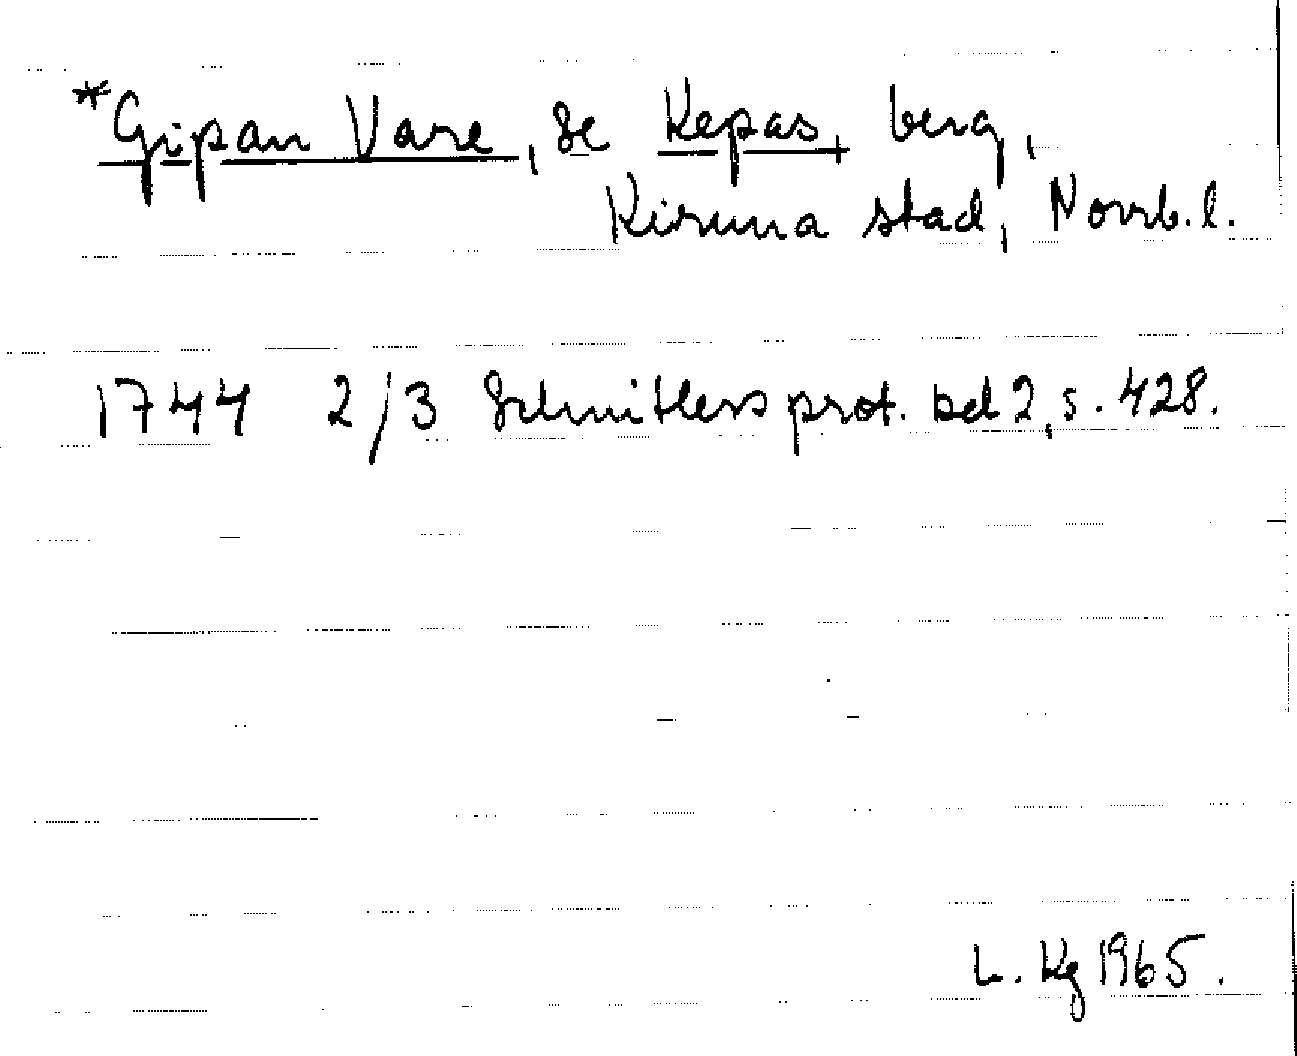 *Gipan Vare, se Kepas, berg,
Kiruna stad, Norrb.l.
1744 2/3 Schnitlers prot. bd 2, s. 428.
L. Kg 1965.